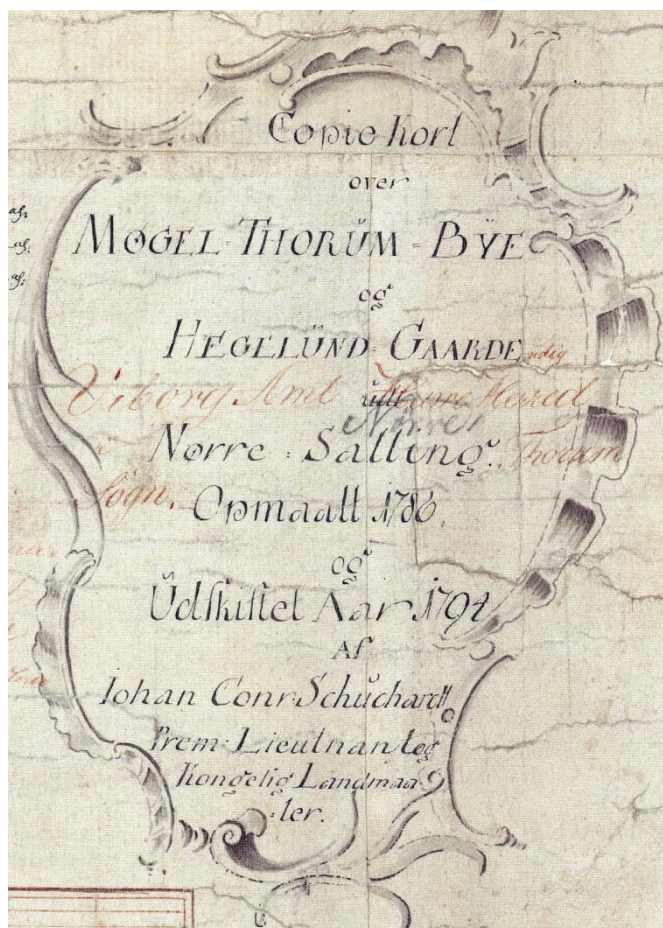 Copie Kort
over
MØGEL-THORŬM-BŸE
og
HEGELŬND-GAARDE
Viborg Amt Hinre Herred
udi Nørre
Nørre-Salling. Thorum
Sogn.
Opmaalt 1786.
og
Ŭdskiftet Aar 1794
Af
Iohan Conr. Schŭchardt
Prem: Lieutnant og
Kongelig Landmaa
-ler.